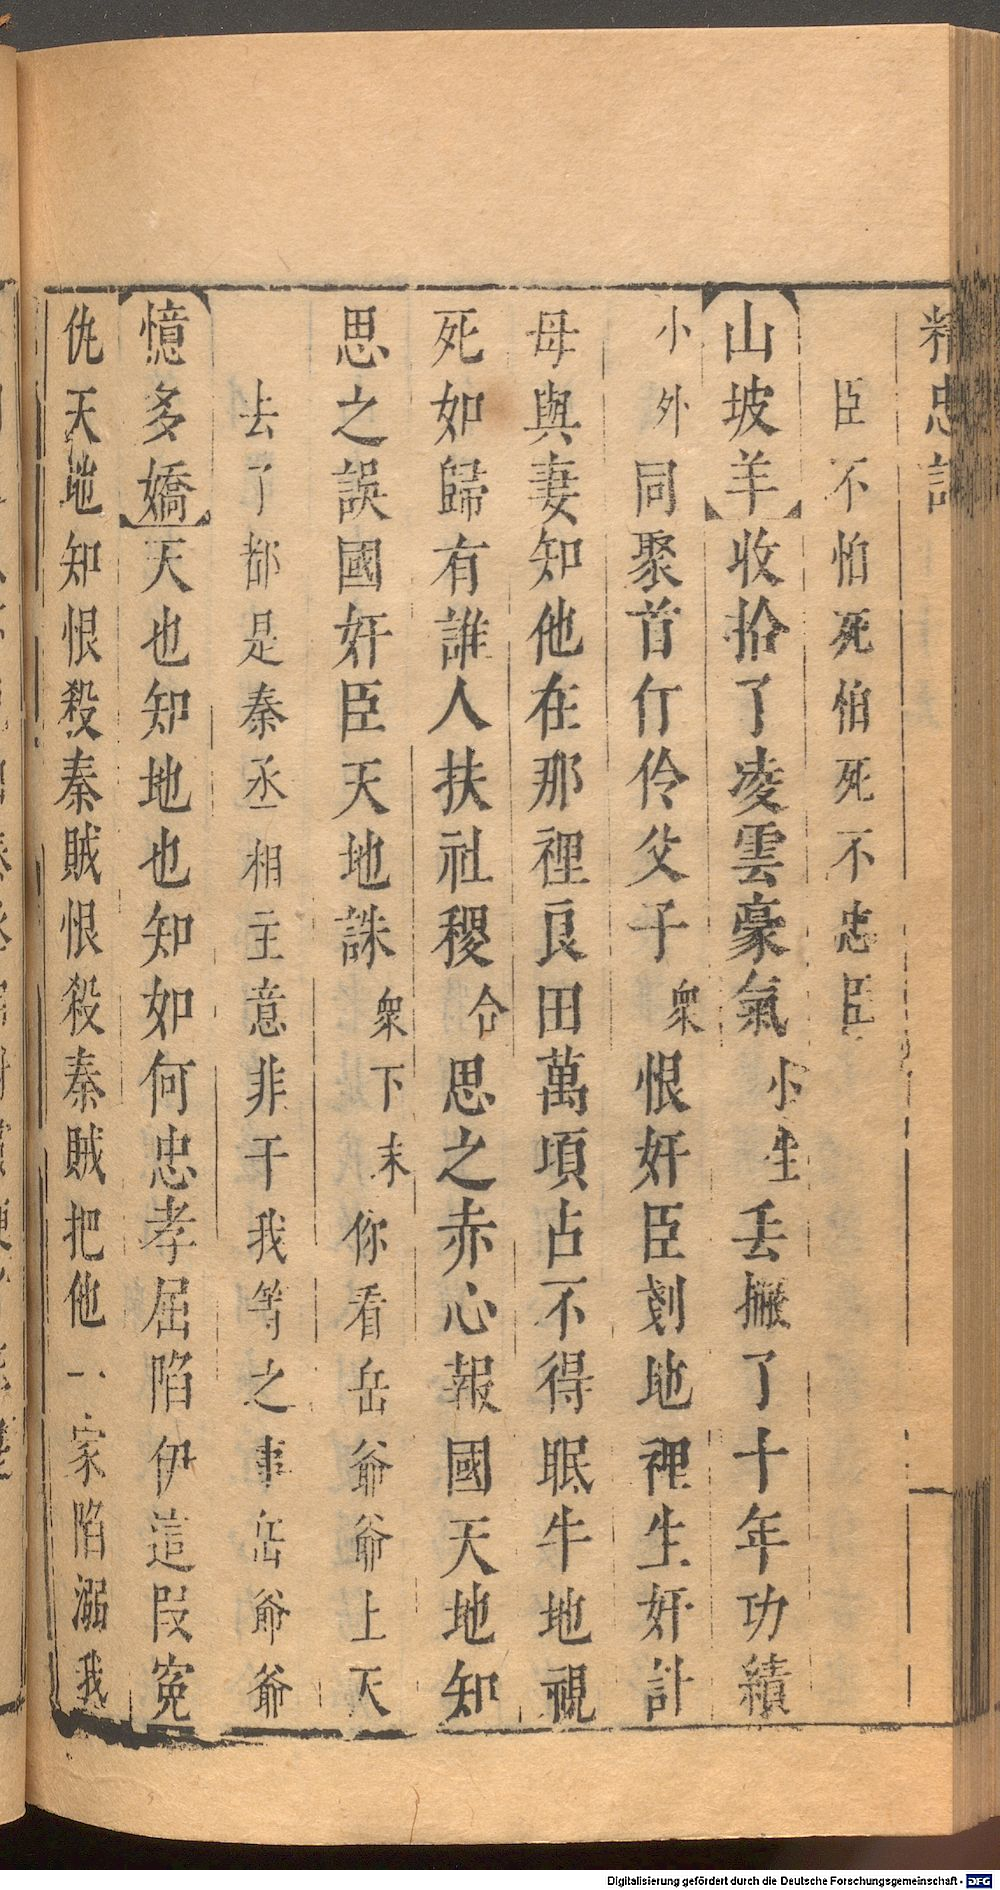 精忠記
臣不怕死怕死不忠臣
【山坡羊】收拾了凌雲豪氣小生丢撇了十年功績
小外同聚首行伶父子衆恨奸臣剗地裡生奸計
母與妻知他在那裡良田萬頃占不得眠牛地視
死如歸有誰人扶社稷合思之赤心報國天地知
思之誤國奸臣天地誅衆下末你看岳爺爺上天
去了都是秦丞相主意非干我等之事岳爺爺
【憶多嬌】天也知地也知如何忠孝屈陷伊這叚寃
仇天地知恨殺秦賊恨殺秦賊把他一家陷溺我
Digitalisierung gefördert durch die Deutsche Forschungsgemeinschaft - DFG